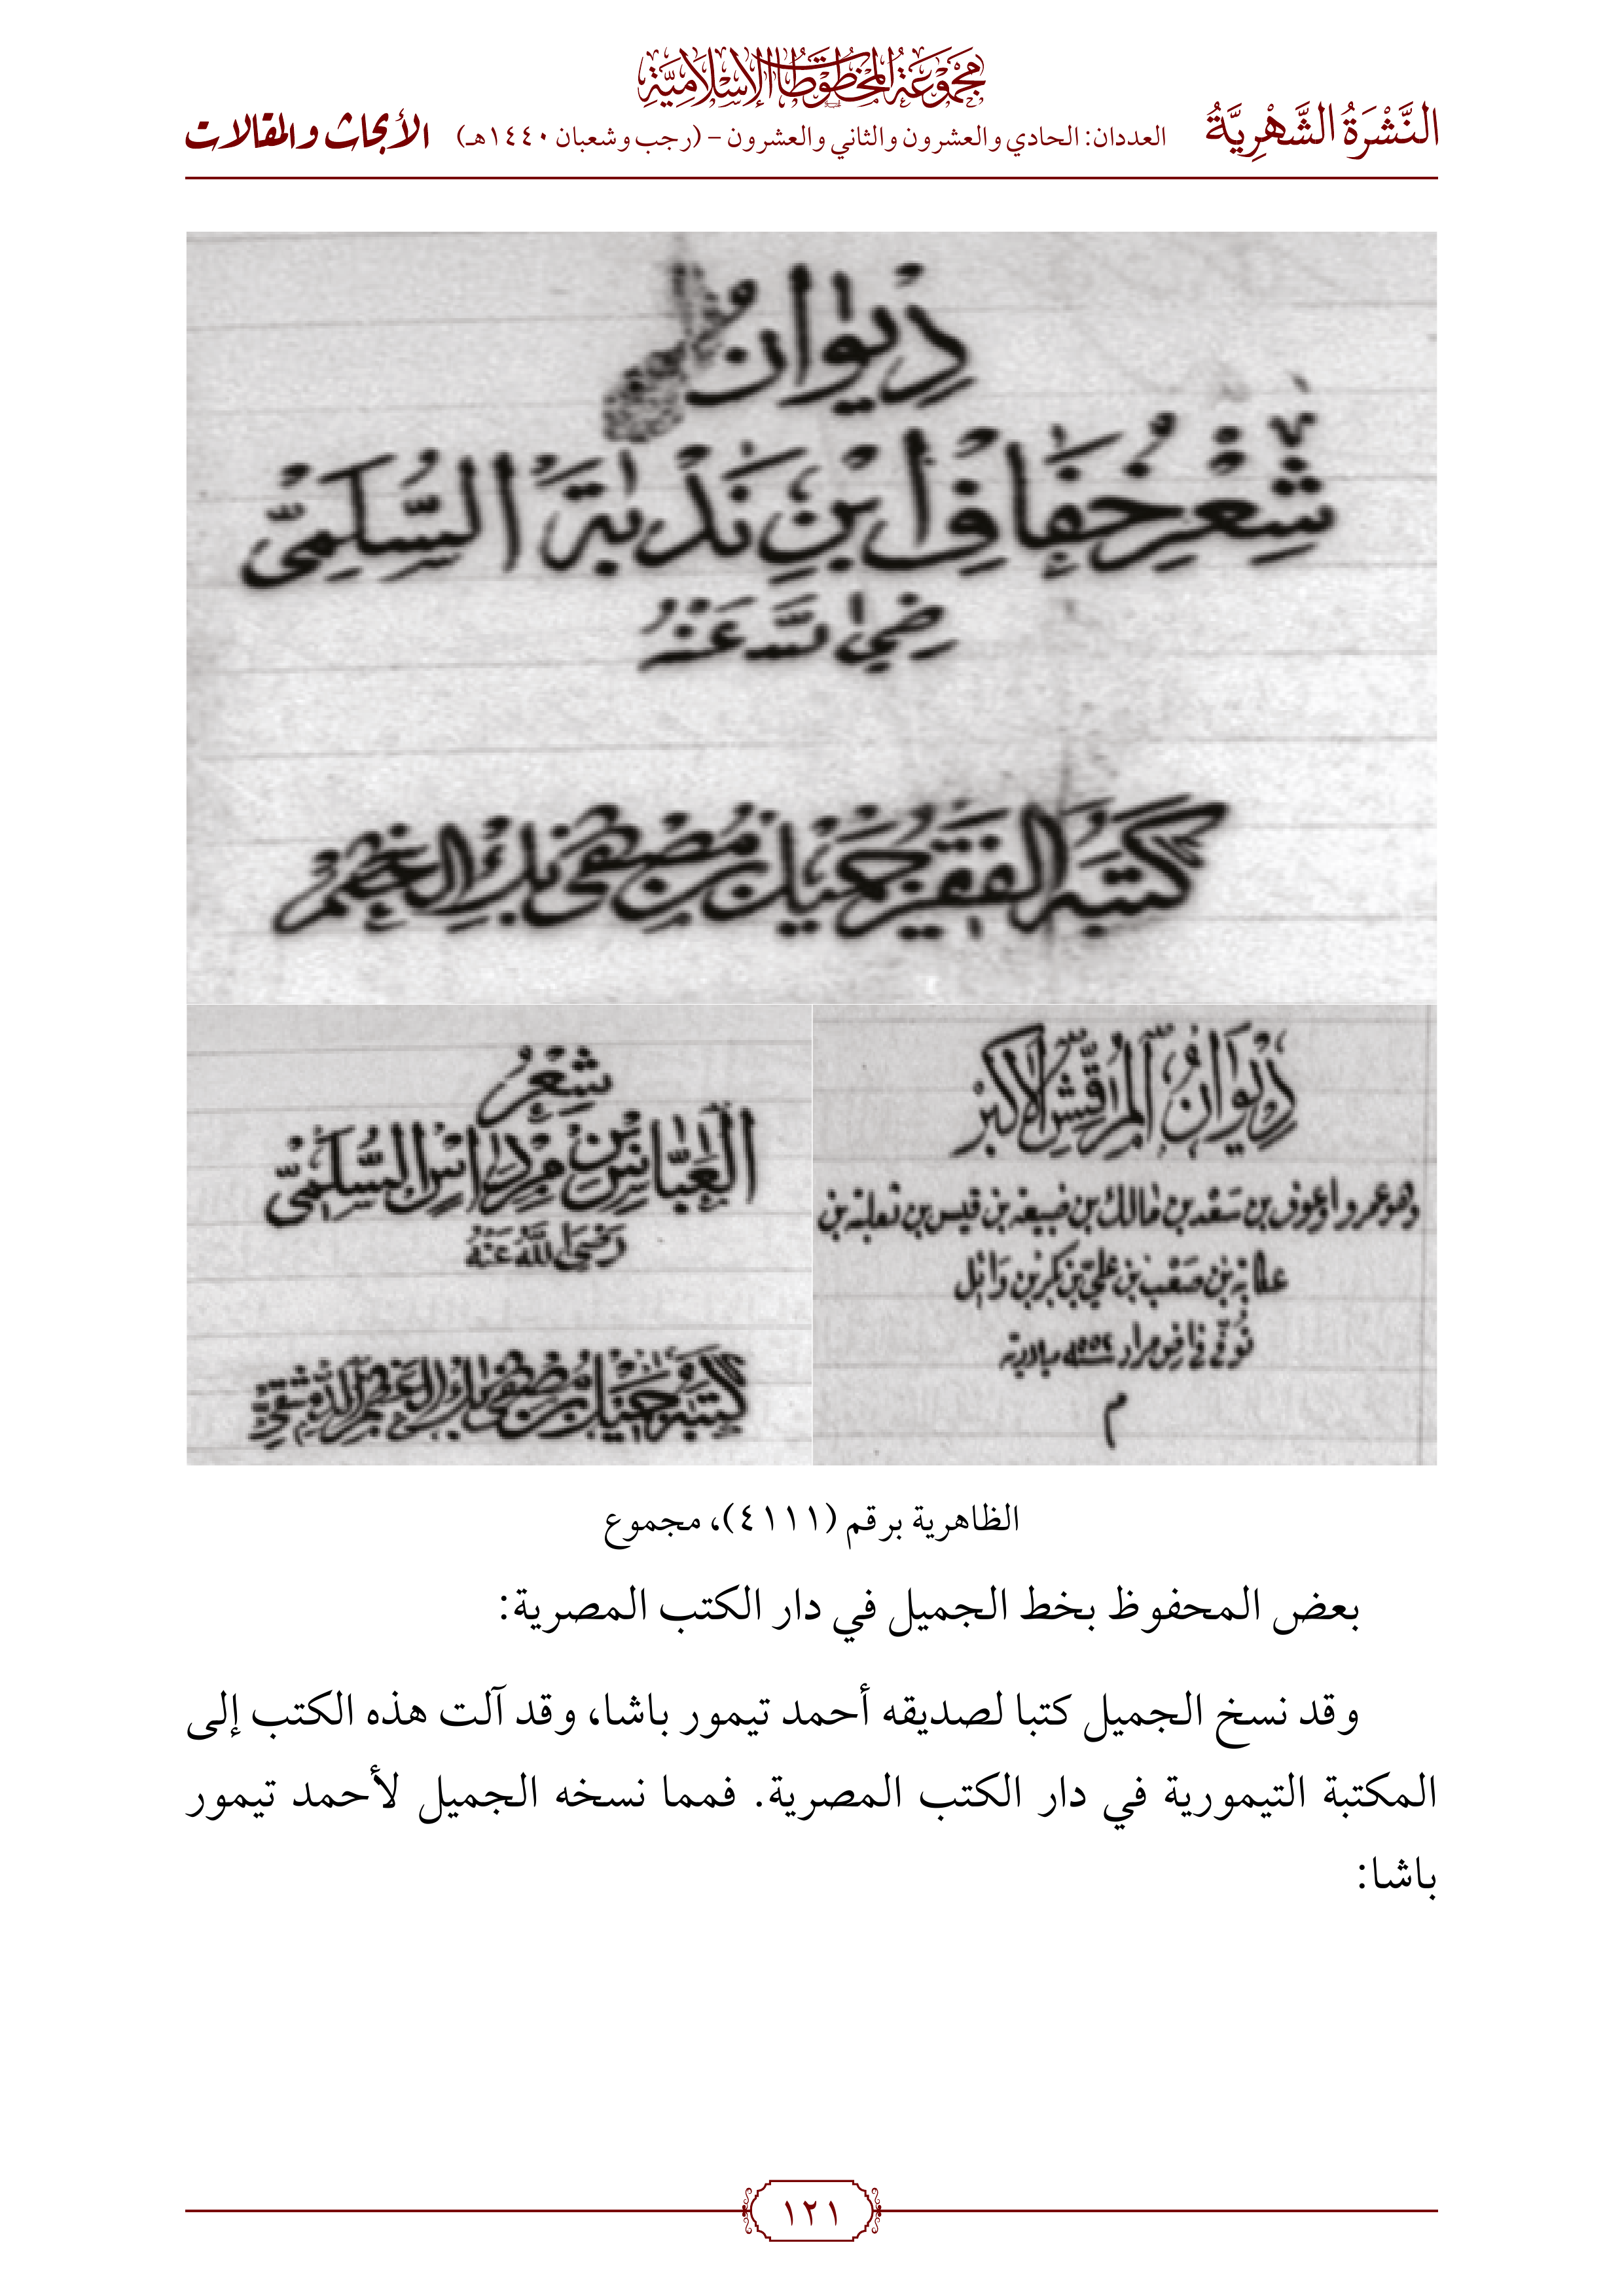 مَجْمُوعَةُ المَخْطُوطَاتِ الإِسْلَامِيَّةِ
النَّشْرَةُ الشَّهْرِيَّةُ العددان: الحادي والعشرون والثاني والعشرون - (رجب وشعبان ١٤٤٠هـ) الأبحاث والمقالات
دِيْوَانُ
شِعْرِ خُفَافِ ابْنِ نَدْبَةَ السُّلَمِىّ
رضي الله عنه
كتبه الفقير جميل بن مصطفى بك العظم
ديوان المرقش الأكبر
وهو عمرو او عوف بن سعد بن مالك بن ضبيعة بن قيس بن ثعلبة بن
عكابة بن صعب بن علي بن بكر بن وائل
توفي في سنة ٥٥٢ ميلادية
م
شعر
العباس بن مرداس السلمىّ
رضي الله عنه
كتبه جميل بن مصطفى بك العظم الدمشقي
الظاهرية برقم (٤١١١)، مجموع
بعض المحفوظ بخط الجميل في دار الكتب المصرية:
وقد نسخ الجميل كتبا لصديقه أحمد تيمور باشا، وقد آلت هذه الكتب إلى
المكتبة التيمورية في دار الكتب المصرية. فمما نسخه الجميل لأحمد تيمور
باشا:
١٢١